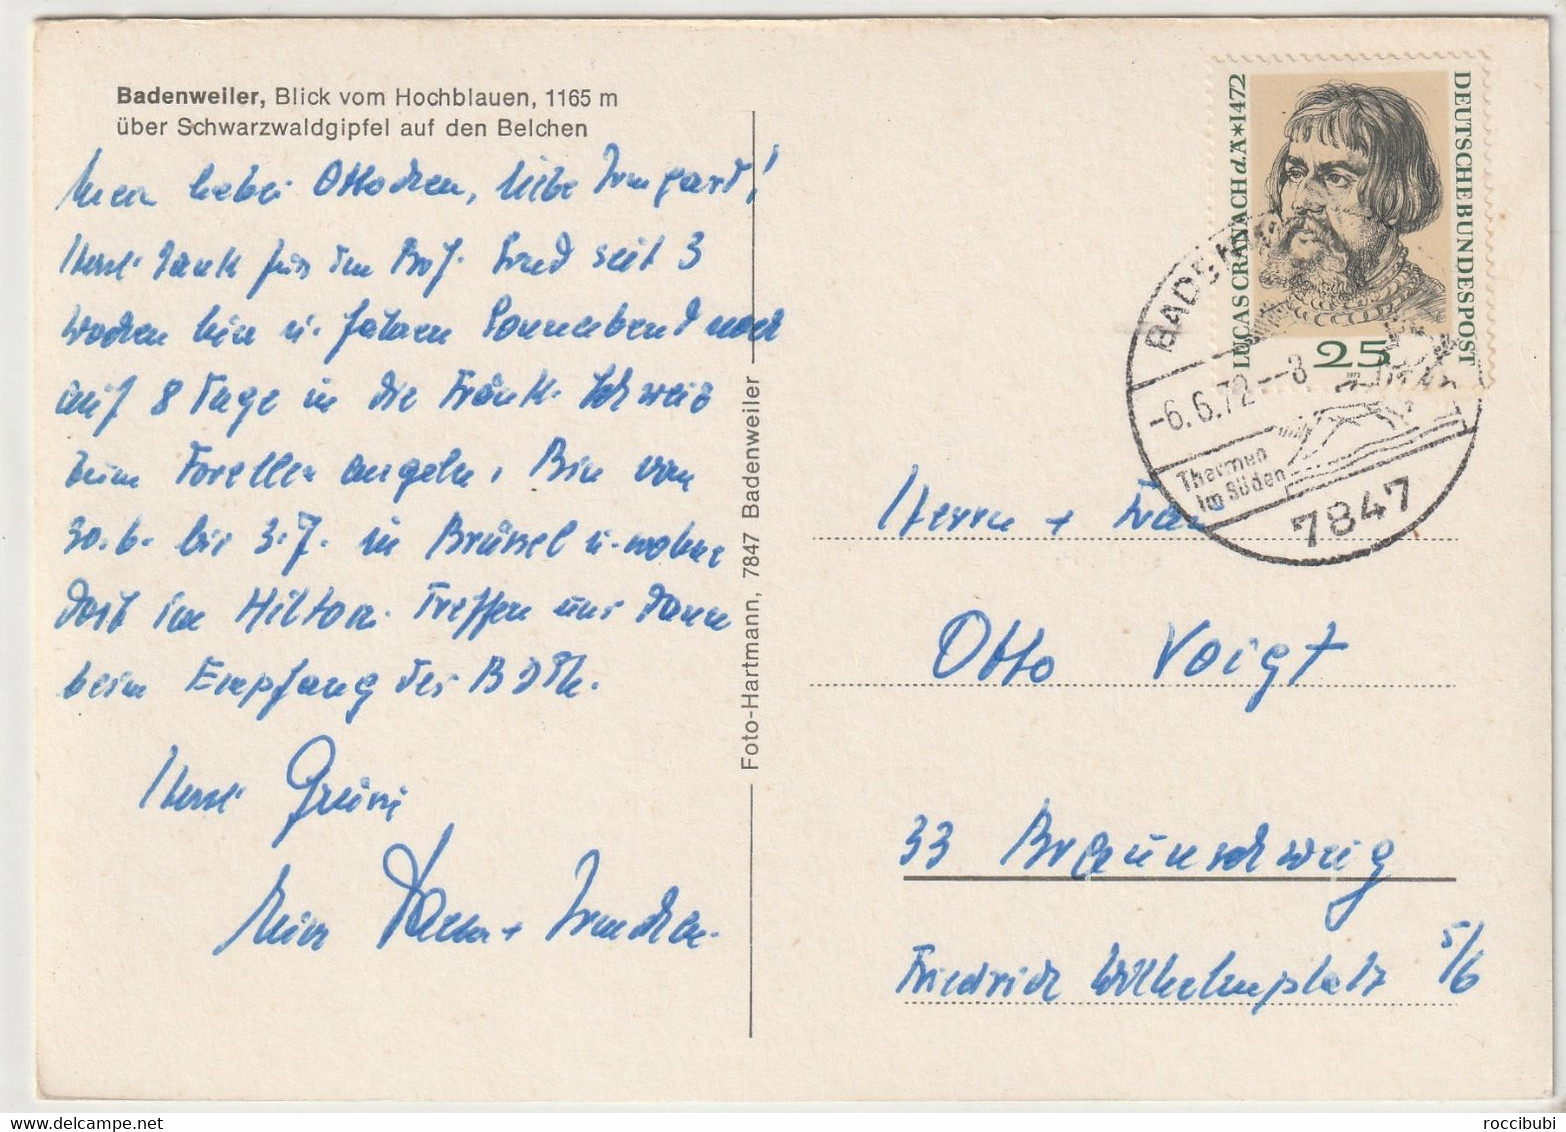 Badenweiler, Blick vom Hochblauen, 1165 m
über Schwarzwaldgipfel auf den Belchen
Mein lieber Ottochen, liebe Irmgard!
Herzl. Dank für den Brief. Sind seit 3
Wochen hier u. fahren Sonnabend noch
auf 8 Tage in die Fränk. Schweiz
zum Forellen angeln. Bin vom
30.6. bis 3.7. in Brüssel u. wohne
dort im Hilton. Treffen uns dann
beim Empfang des
Herzl. Grüsse
Foto-Hartmann, 7847 Badenweiler
LUCAS CRANACH d.Ä *1472
DEUTSCHE BUNDESPOST
25
BADENW
-6.6.72--8
Thermen
im Süden
7847
Herrn + Frau
Otto Voigt
33 Braunschweig
Friedrich Wilhelmplatz 5/6
roccibubi